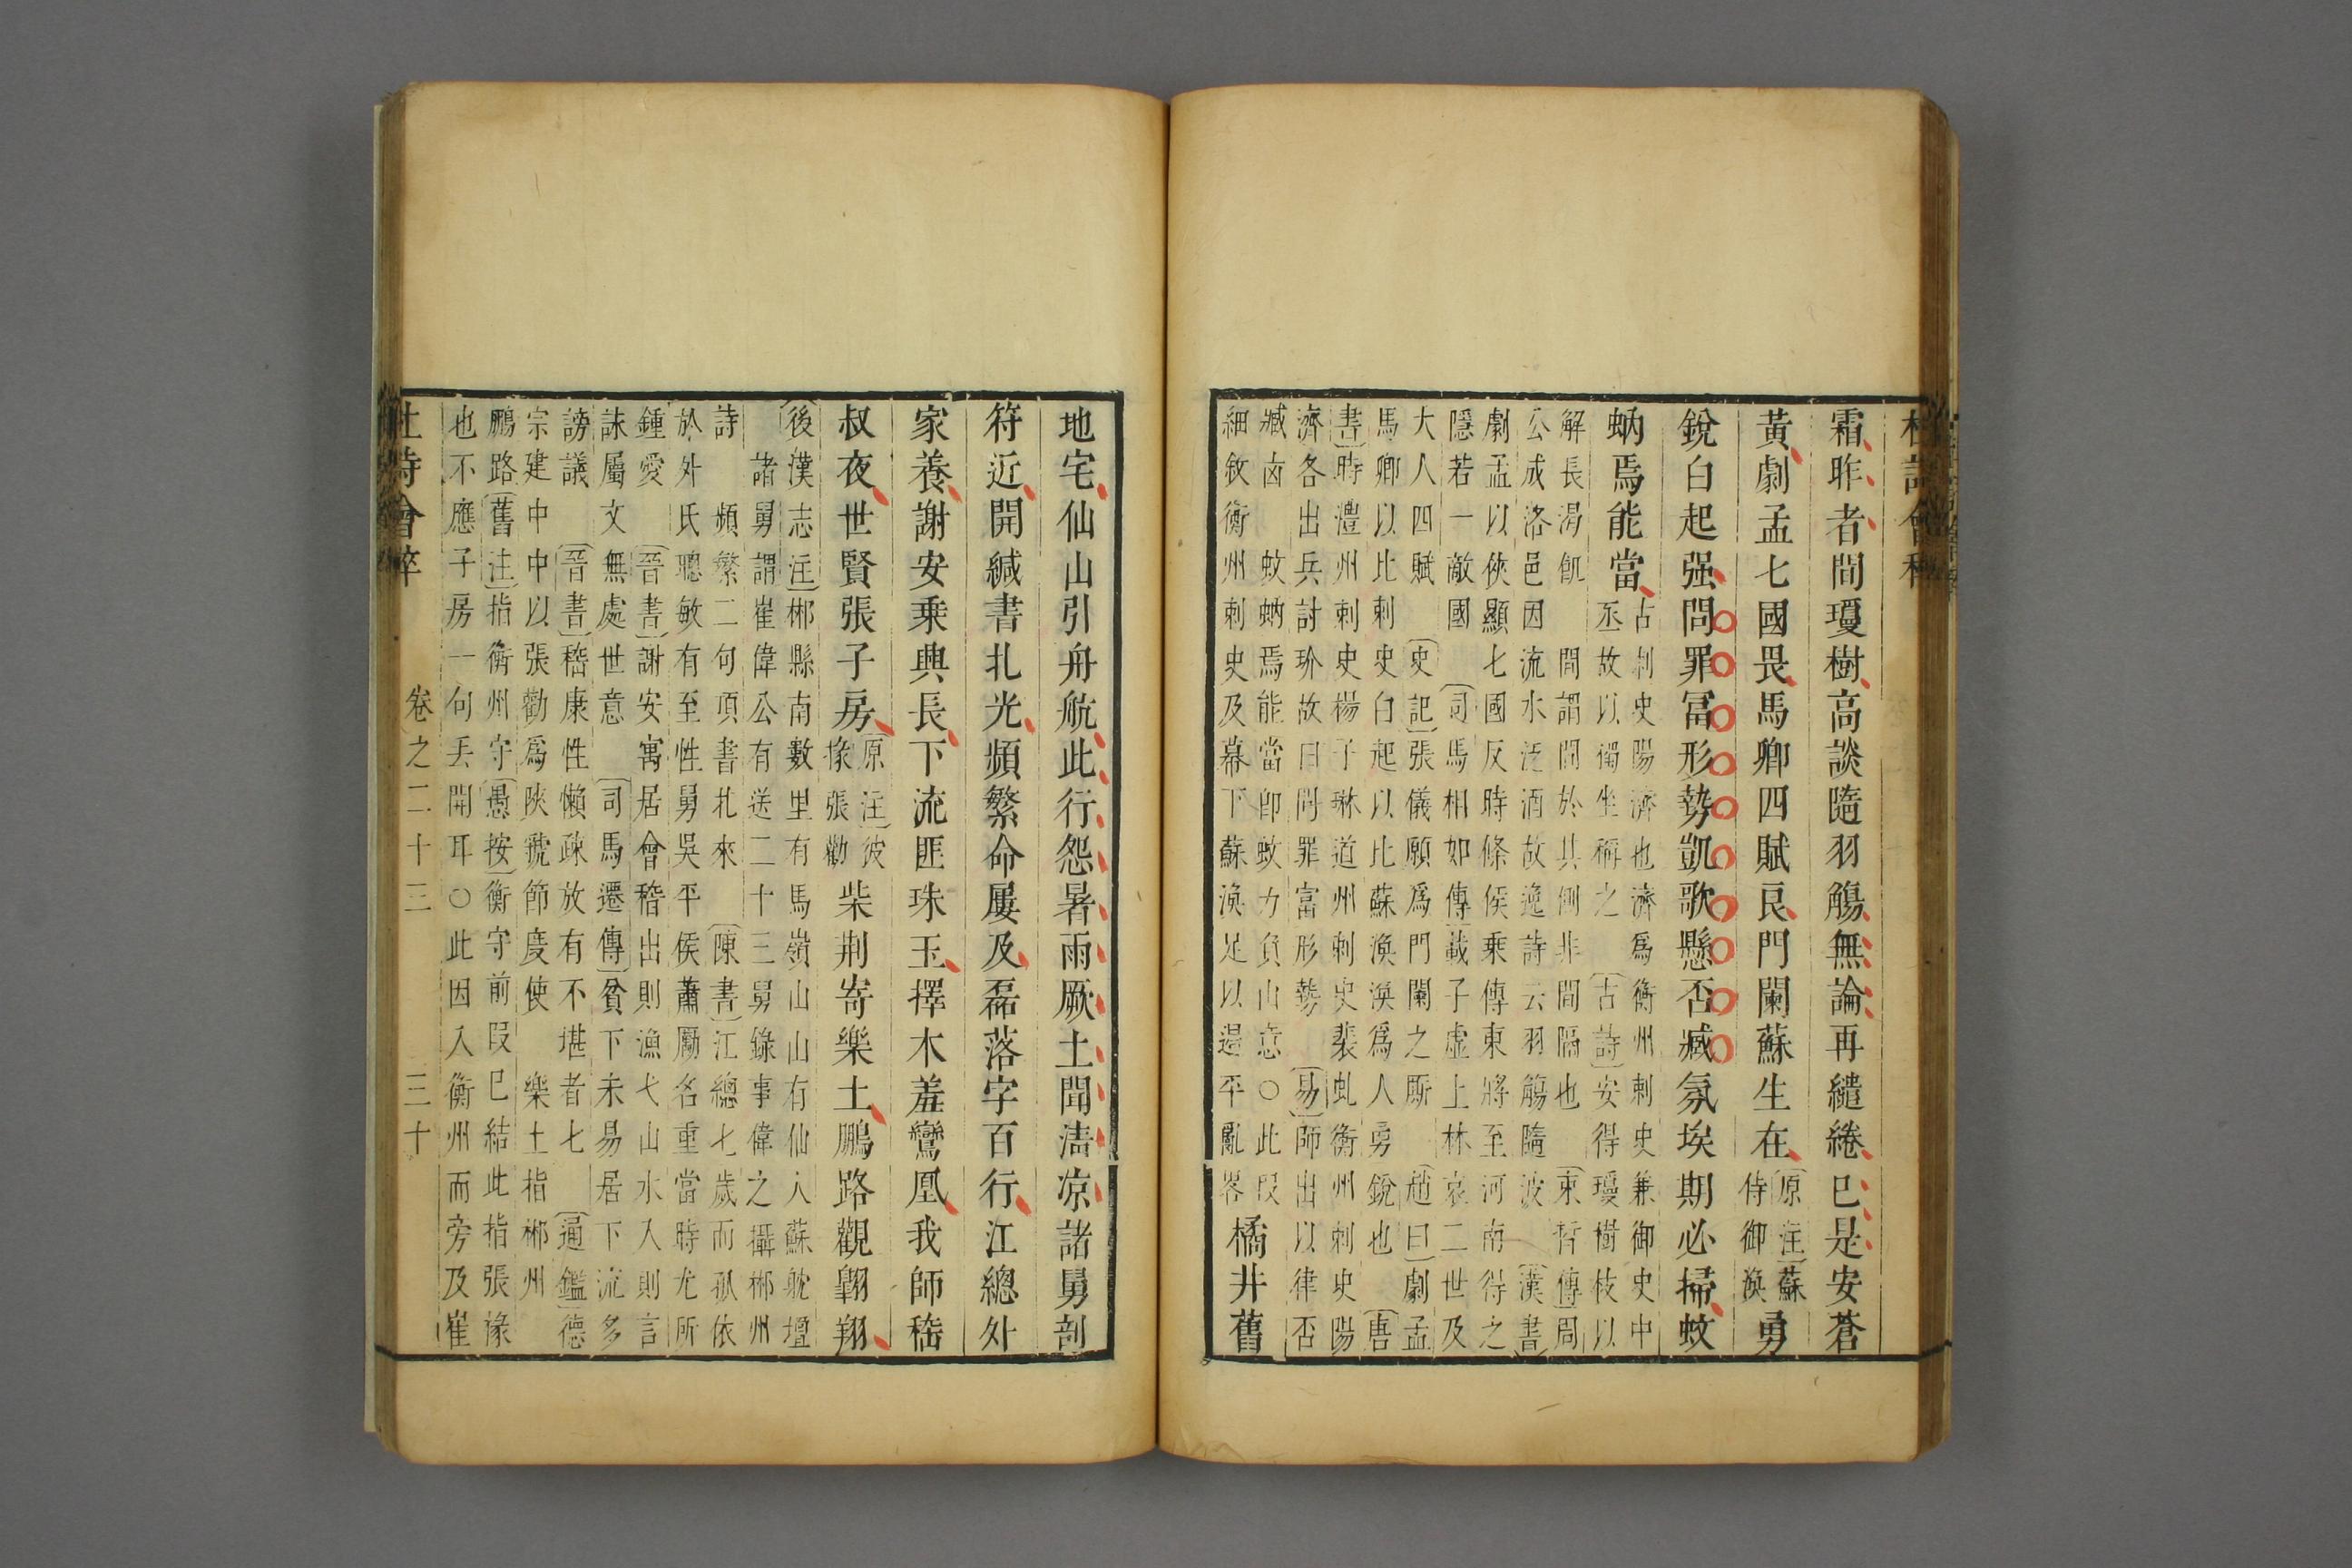 霜昨者間瓊樹高談隨羽觴無論再繾綣已是安蒼
黃劇孟七國畏馬卿四賦良門闌蘇生在
原注蘇
侍御渙
勇
銳白起强問罪冨形勢凱歌懸否臧氛埃期必掃蚊
蚋焉能當
古刺史陽濟也濟爲衡州刺史兼御史中
丞故以獨坐稱之古詩安得瓊樹枝以
解長渴飢
間謂間於其側非間隔也
束晳傳周
公成洛邑因流水泛酒故逸詩云羽觴隨波
漢書
劇孟以俠顯七國反時條侯乘傳東將至河南得之
隱若一敵國
司馬相如傳載子虛上林哀二世及
大人四賦
史記張儀願爲門闌之厮
趙曰劇孟
馬卿以比刺史白起以比蘇渙渙爲人勇銳也
唐
書時澧州刺史楊子琳道州刺史裴虬衡州刺史陽
濟各出兵討玠故曰問罪富形勢
易師出以律否
臧凶
蚊蚋焉能當即蚊力負山意○此叚
細敘衡州刺史及幕下蘇渙足以遏平亂畧
橘井舊
地宅仙山引舟航此行怨暑雨厥土聞清凉諸舅剖
符近開緘書札光頻繁命屢及磊落字百行江總外
家養謝安乗興長下流匪珠玉擇木羞鸞凰我師嵇
叔夜世賢張子房
原注彼
掾張勸
柴荆寄樂土鵬路觀翺翔
後漢志注郴縣南數里有馬嶺山山有仙人蘇躭壇
諸舅謂崔偉公有送二十三舅錄事偉之攝郴州
詩
頻繁二句項書札來
陳書江總七歲而孤依
於外氏聰敏有至性舅吳平侯蕭勵名重當時尤所
鍾愛
晉書謝安寓居會稽出則漁弋山水入則言
詠屬文無處世意
司馬遷傳貧下未易居下流多
謗議
晉書嵇康性懶疎放有不堪者七
通鑑德
宗建中中以張勸爲陜虢節度使
樂土指郴州
鵬路舊注指衡州守愚按衡守前叚已結此指張掾
也不應子房一句丢開耳○此因入衡州而旁及崔
杜詩會稡
卷之二十三
三十